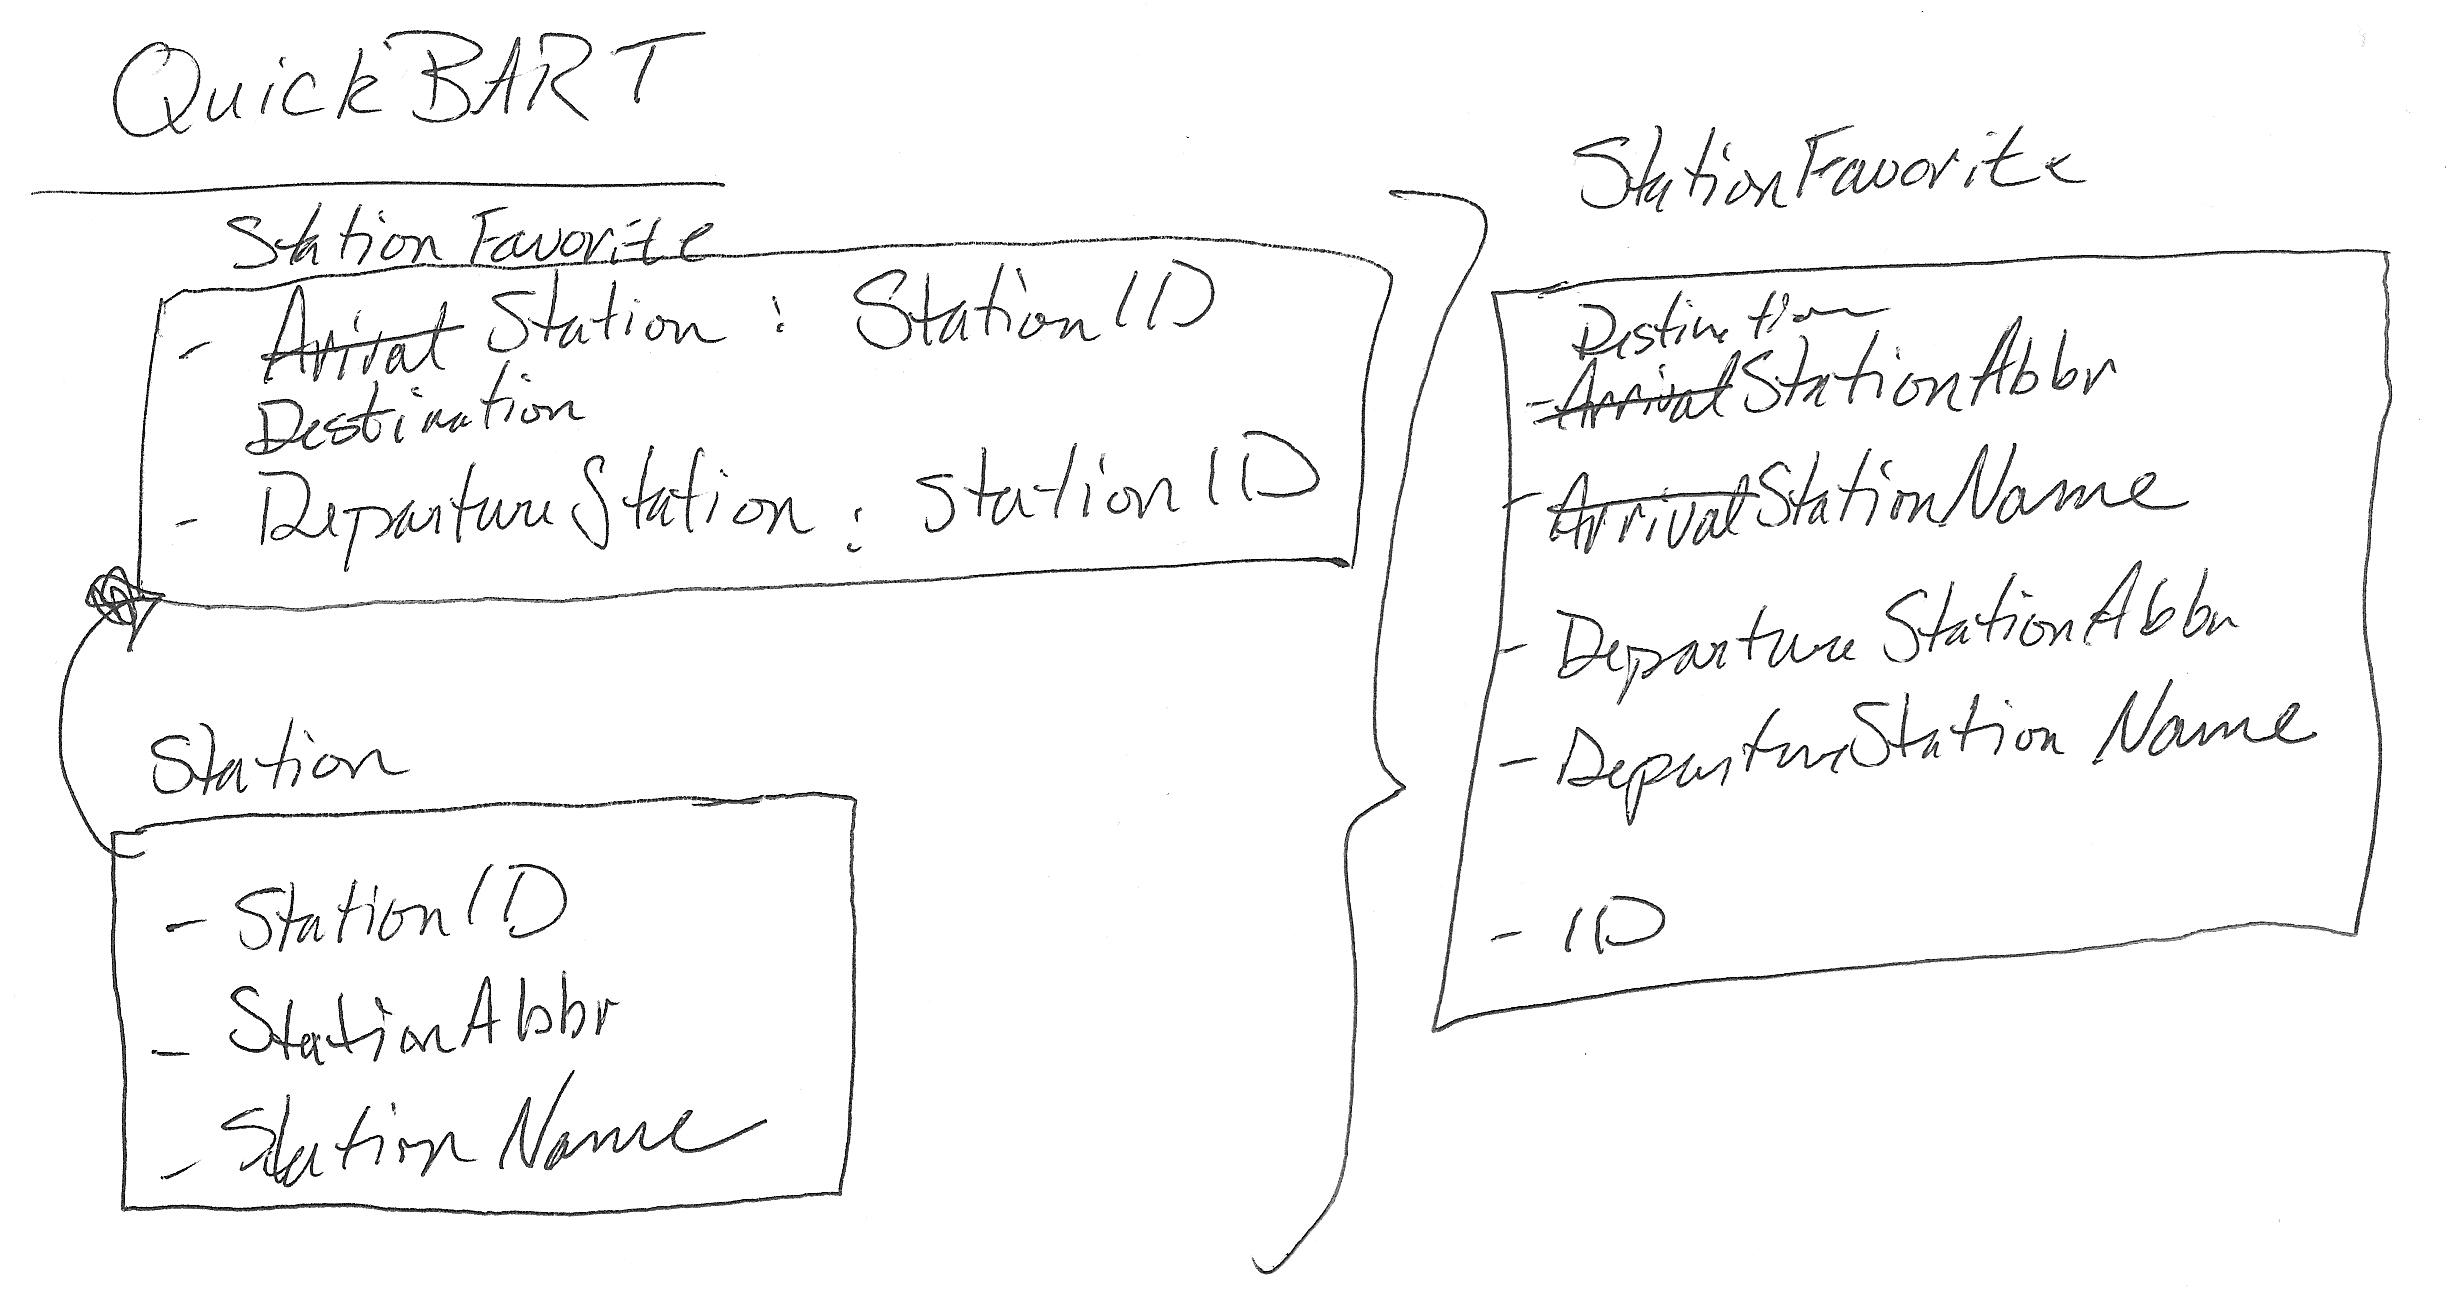 QuickBART
StationFavorite
- Arival Station : StationID
Destination
- DepartureStation : StationID
Station
- StationID
- StationAbbr
- StationName
StationFavorite
Destination
- ArrivalStationAbbr
- ArrivalStationName
- DepartureStationAbbr
- DepartureStation Name
- ID